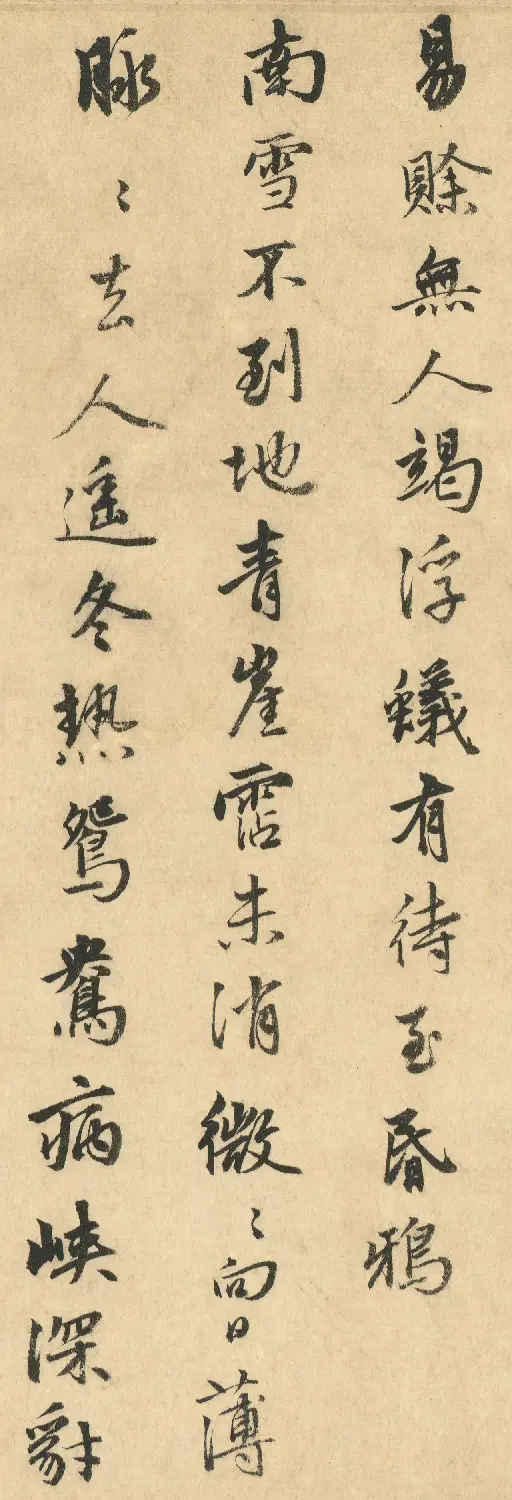 易賖無人竭浮蟻有待至昏鴉
南雪不到地青崖霑未消微〻向日薄
脉〻去人遥冬热鴛鴦病峡深豺